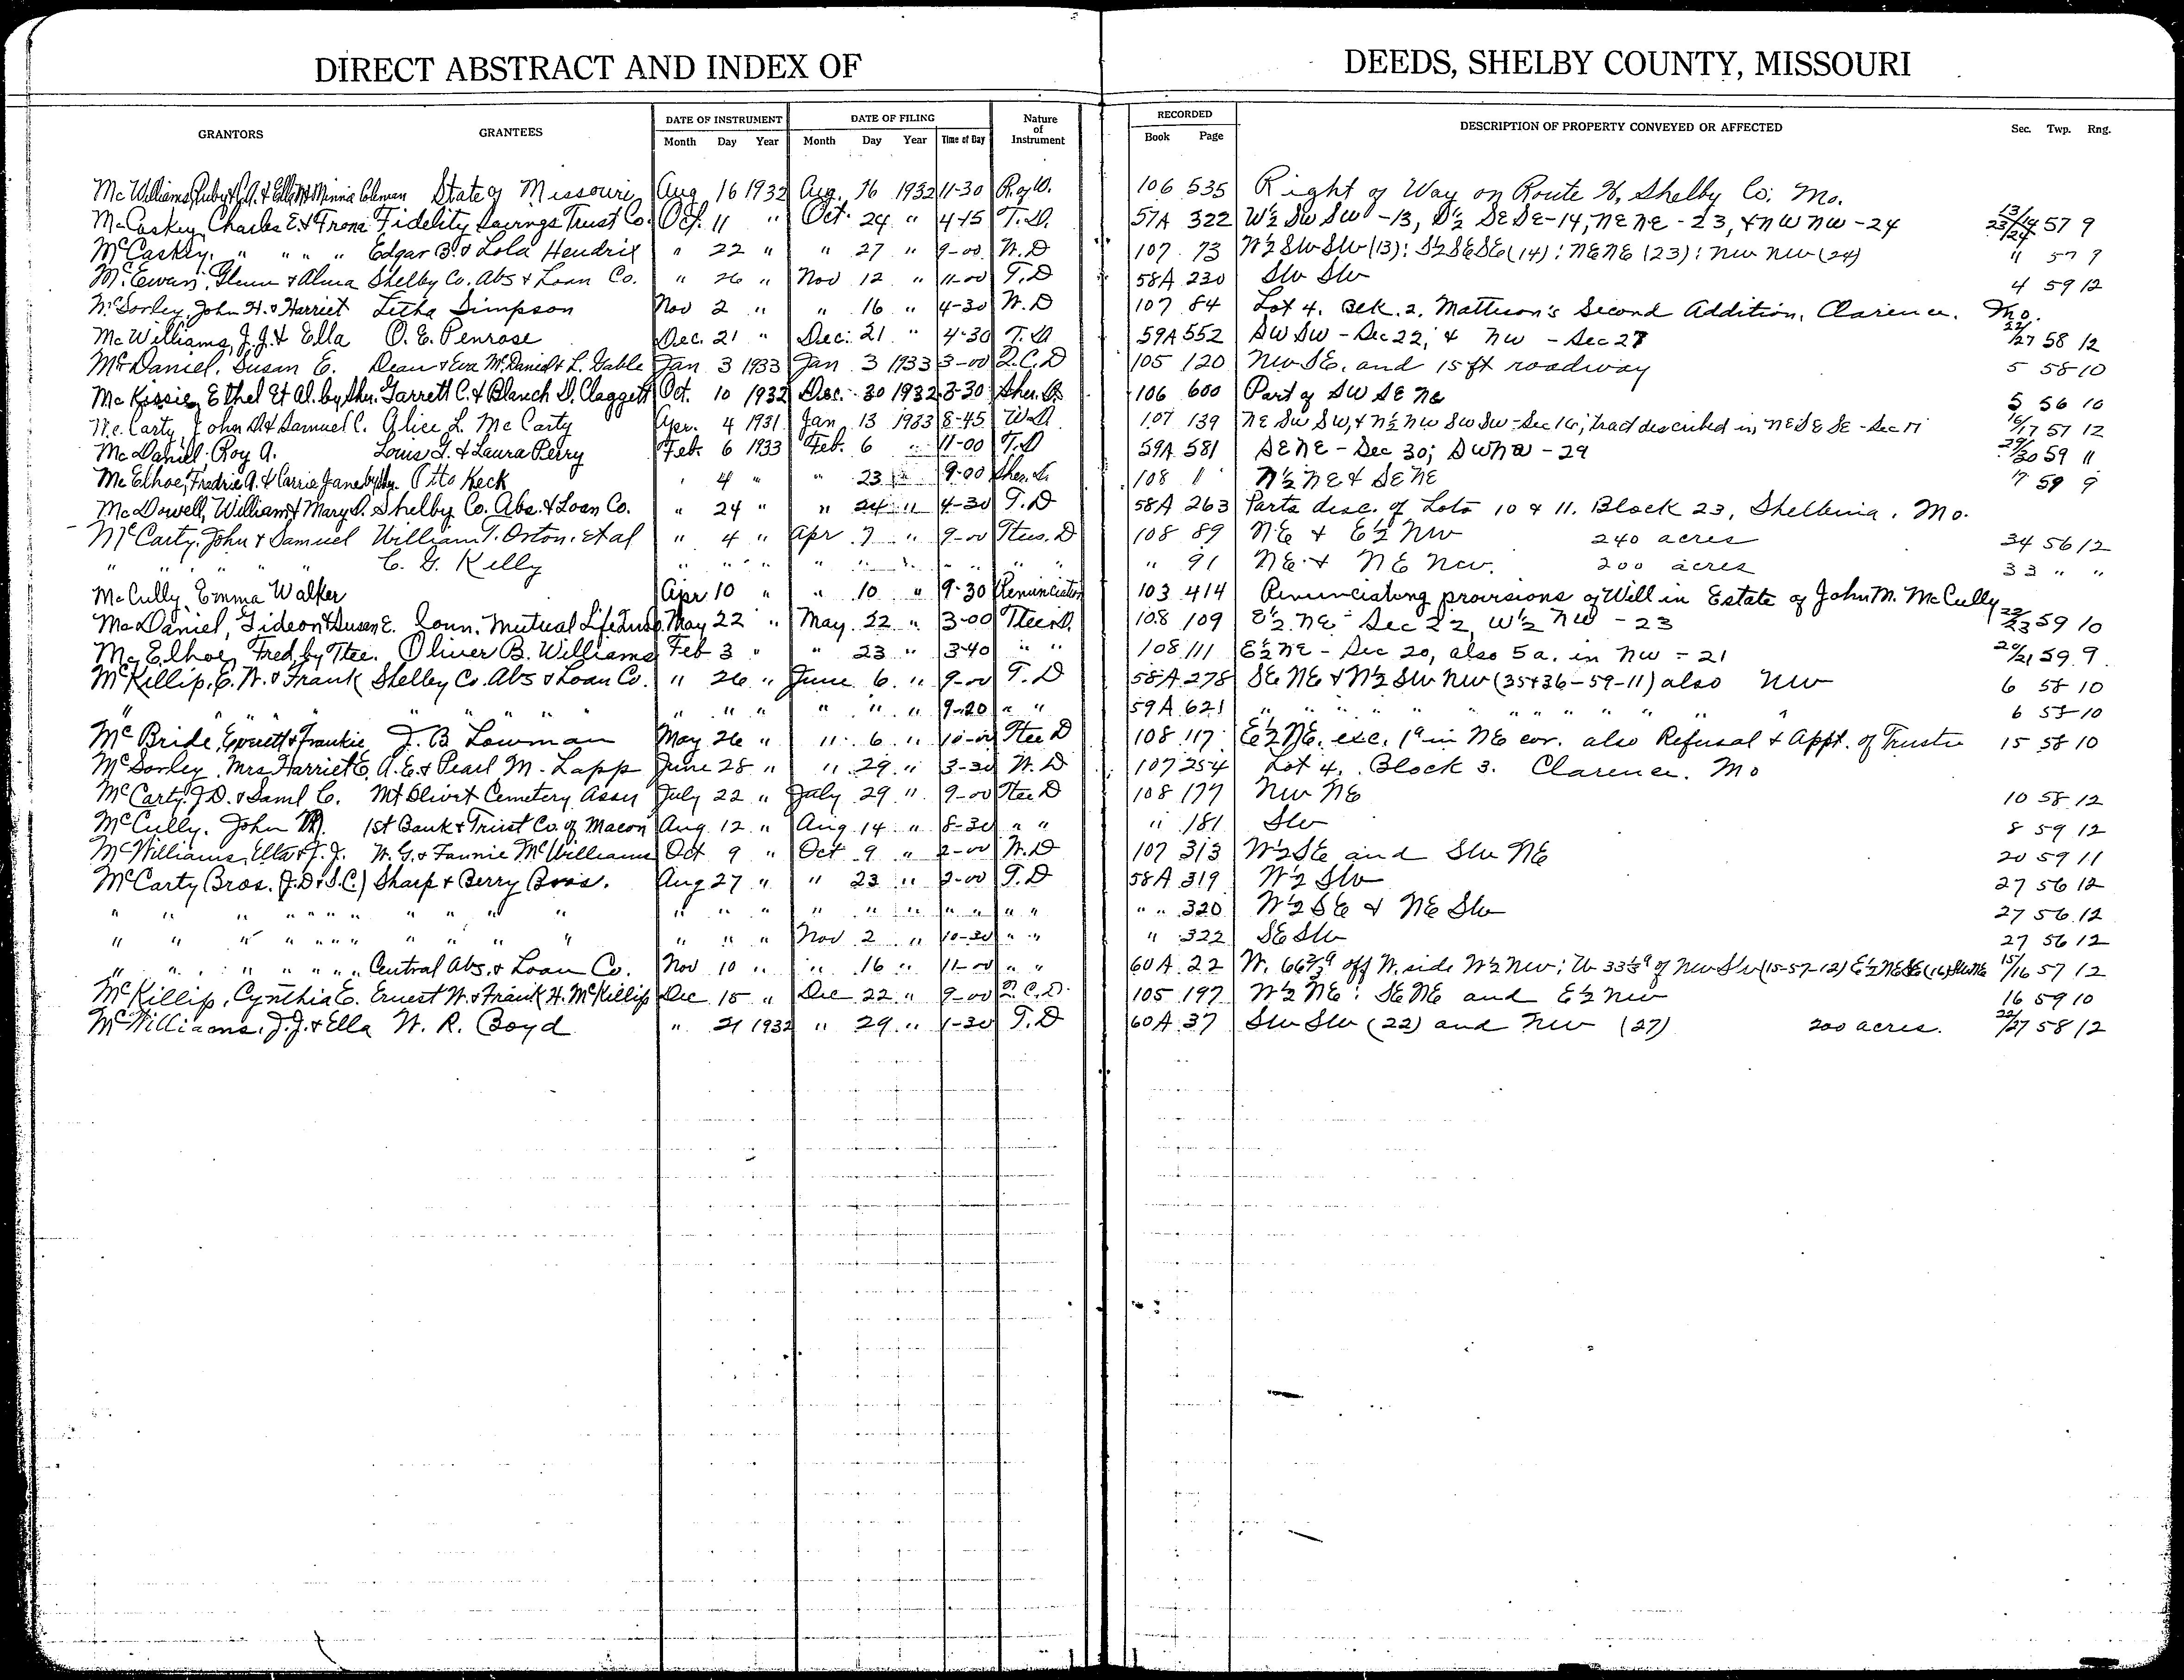 DIRECT ABSTRACT AND INDEX OF DEEDS, SHELBY COUNTY, MISSOURI
GRANTORS GRANTEES DATE OF INSTRUMENT Month Day Year DATE OF FILING Month Day Year Time of Day Nature of Instrument RECORDED Book Page DESCRIPTION OF PROPERTY CONVEYED OR AFFECTED Sec. Twp. Rng.
Mc Williams, Ruby & Minnie Coleman State of Missouri Aug 16 1932 Aug. 16 1932 11-30 R. of W. 106 535 Right of Way on Route Shelby Co; Mo.
McCaskey, Charles E. & Frona Fidelity Savings Trust Co. Oct. 11 " Oct. 24 " 4-15 T.D. 57A 322 W½ SW SW -13, S½ SE SE-14, NE NE - 23, & NW NW - 24 13/14 23/24 57 9
McCaskey, " " " " Edgar B. & Lola Hendrix " 22 " " 27 " 9-00 W.D 107 73 W½ SW SW (13): S½ SE SE (14): NE NE (23): NW NW (24) " 57 9
McEwen, Glenn & Alma Shelby Co. Abs & Loan Co. " 26 " Nov 12 " 11-00 T.D 58A 230 SW SW 4 59 12
McSorley, John H. & Harriet Litha Simpson Nov 2 " " 16 " 4-30 W.D 107 84 Lot 4. Blk. 2. Mattison's Second Addition, Clarence. Mo.
McWilliams, J.J. & Ella O. E. Penrose Dec. 21 " Dec. 21 " 4-30 T.D 59A 552 SW SW - Sec 22, & NW - Sec 27 22/27 58 12
McDaniel, Susan E. Dean & Eva McDaniel & L. Gable Jan 3 1933 Jan 3 1933 3-00 Q.C.D 105 120 NW SE, and 15 ft roadway 5 58 10
Mc Kissie, Ethel Et Al. by Sher. Garrett C. & Blanch D. Claggett Oct. 10 1932 Dec. 30 1932 3-30 Sher. D. 106 600 Part of SW SE NE 5 56 10
Mc Carty, John D. & Samuel C. Alice L. Mc Carty Apr. 4 1931 Jan 13 1933 8-45 W.D 107 139 NE SW SW, & N½ NW SW SW - Sec 16; tract described in NE SE SE - Sec 17 16/17 57 12
Mc Daniel, Roy A. Louis G. & Laura Perry Feb. 6 1933 Feb. 6 " 11-00 T.D 59A 581 SE NE - Sec 30; SW NW - 29 29/30 59 11
Mc Elhoe, Fredric A. & Carrie Jane by Sher. Otto Keck " 4 " " 23 " 9-00 Sher. D. 108 1 N½ NE & SE NE 7 59 9
Mc Dowell, William & Mary D. Shelby Co. Abs. & Loan Co. " 24 " " 24 " 4-30 T.D 58A 263 Parts desc. of Lots 10 & 11. Block 23, Shelbina. Mo.
McCarty, John & Samuel William T. Orton, et al " 4 " Apr 7 " 9-00 Ttus. D 108 89 NE & E½ NW 240 acres 34 56 12
" " " " C. G. Kelly " " " " " " " " " 91 NE & NE NW. 200 acres 33 " "
McCully, Emma Walker Apr 10 " " 10 " 9-30 Renunciation 103 414 Renunciating provisions of Will in Estate of John M. McCully
McDaniel, Gideon & Susan E. Conn. Mutual Life Ins. Co. May 22 " May 22 " 3-00 Ttee D. 108 109 E½ NE - Sec 22, W½ NW - 23 22/23 59 10
McElhoe, Fred by Ttee. Oliver B. Williams Feb 3 " " 23 " 3-40 " " 108 111 E½ NE - Sec 20, also 5a. in NW - 21 20/21 59 9
McKillip, E. W. & Frank Shelby Co. Abs & Loan Co. " 26 " June 6 " 9-00 T.D 58A 278 SE NE & N½ SW NW (35+36-59-11) also NW 6 58 10
" " " " " " " " " " " " " 9-20 " " 59A 621 " " " " " " " " " " " 6 58 10
McBride, Everett & Frankie J. B Lowman May 26 " " 6 " 10-00 Ttee D 108 117 E½ NE. exc. 1ª in NE cor. also Refusal & Appt. of Trustee 15 58 10
McSorley, Mrs Harriet E. A. E. & Pearl M. Lapp June 28 " " 29 " 3-30 W.D 107 254 Lot 4, Block 3. Clarence. Mo
McCarty, J.D. & Saml C. Mt Olivet Cemetery Assn July 22 " July 29 " 9-00 Ttee D 108 177 NW NE 10 58 12
McCully, John M. 1st Bank & Trust Co. of Macon Aug 12 " Aug 14 " 8-30 " " " 181 SW 8 59 12
McWilliams, Ella & J.J. W. G. & Fannie McWilliams Oct 9 " Oct 9 " 2-00 W.D 107 313 W½ SE and SW NE 20 59 11
McCarty Bros. (J.D & S.C.) Sharp & Berry Bros. Aug 27 " " 23 " 2-00 T.D 58A 319 W½ SW 27 56 12
" " " " " " " " " " " " " " " " " " " " " " " 320 W½ SE & NE SW 27 56 12
" " " " " " " " " " " " " " Nov 2 " 10-30 " " " 322 SE SW 27 56 12
" " " " " " " Central Abs. & Loan Co. Nov 10 " " 16 " 11-00 " " 60A 22 W. 66⅔ª off W. side W½ NW; W 33⅓ª of NW SW (15-57-12) E½ NE SE (16) 15/16 57 12
McKillip, Cynthia E. Ernest W. & Frank H. McKillip Dec 15 " Dec 22 " 9-00 Q.C.D. 105 197 W½ NE: SE NE and E½ NW 16 59 10
McWilliams, J.J. & Ella W. R. Boyd " 21 1932 " 29 " 1-30 T.D 60A 37 SW SW (22) and NW (27) 200 acres. 22/27 58 12